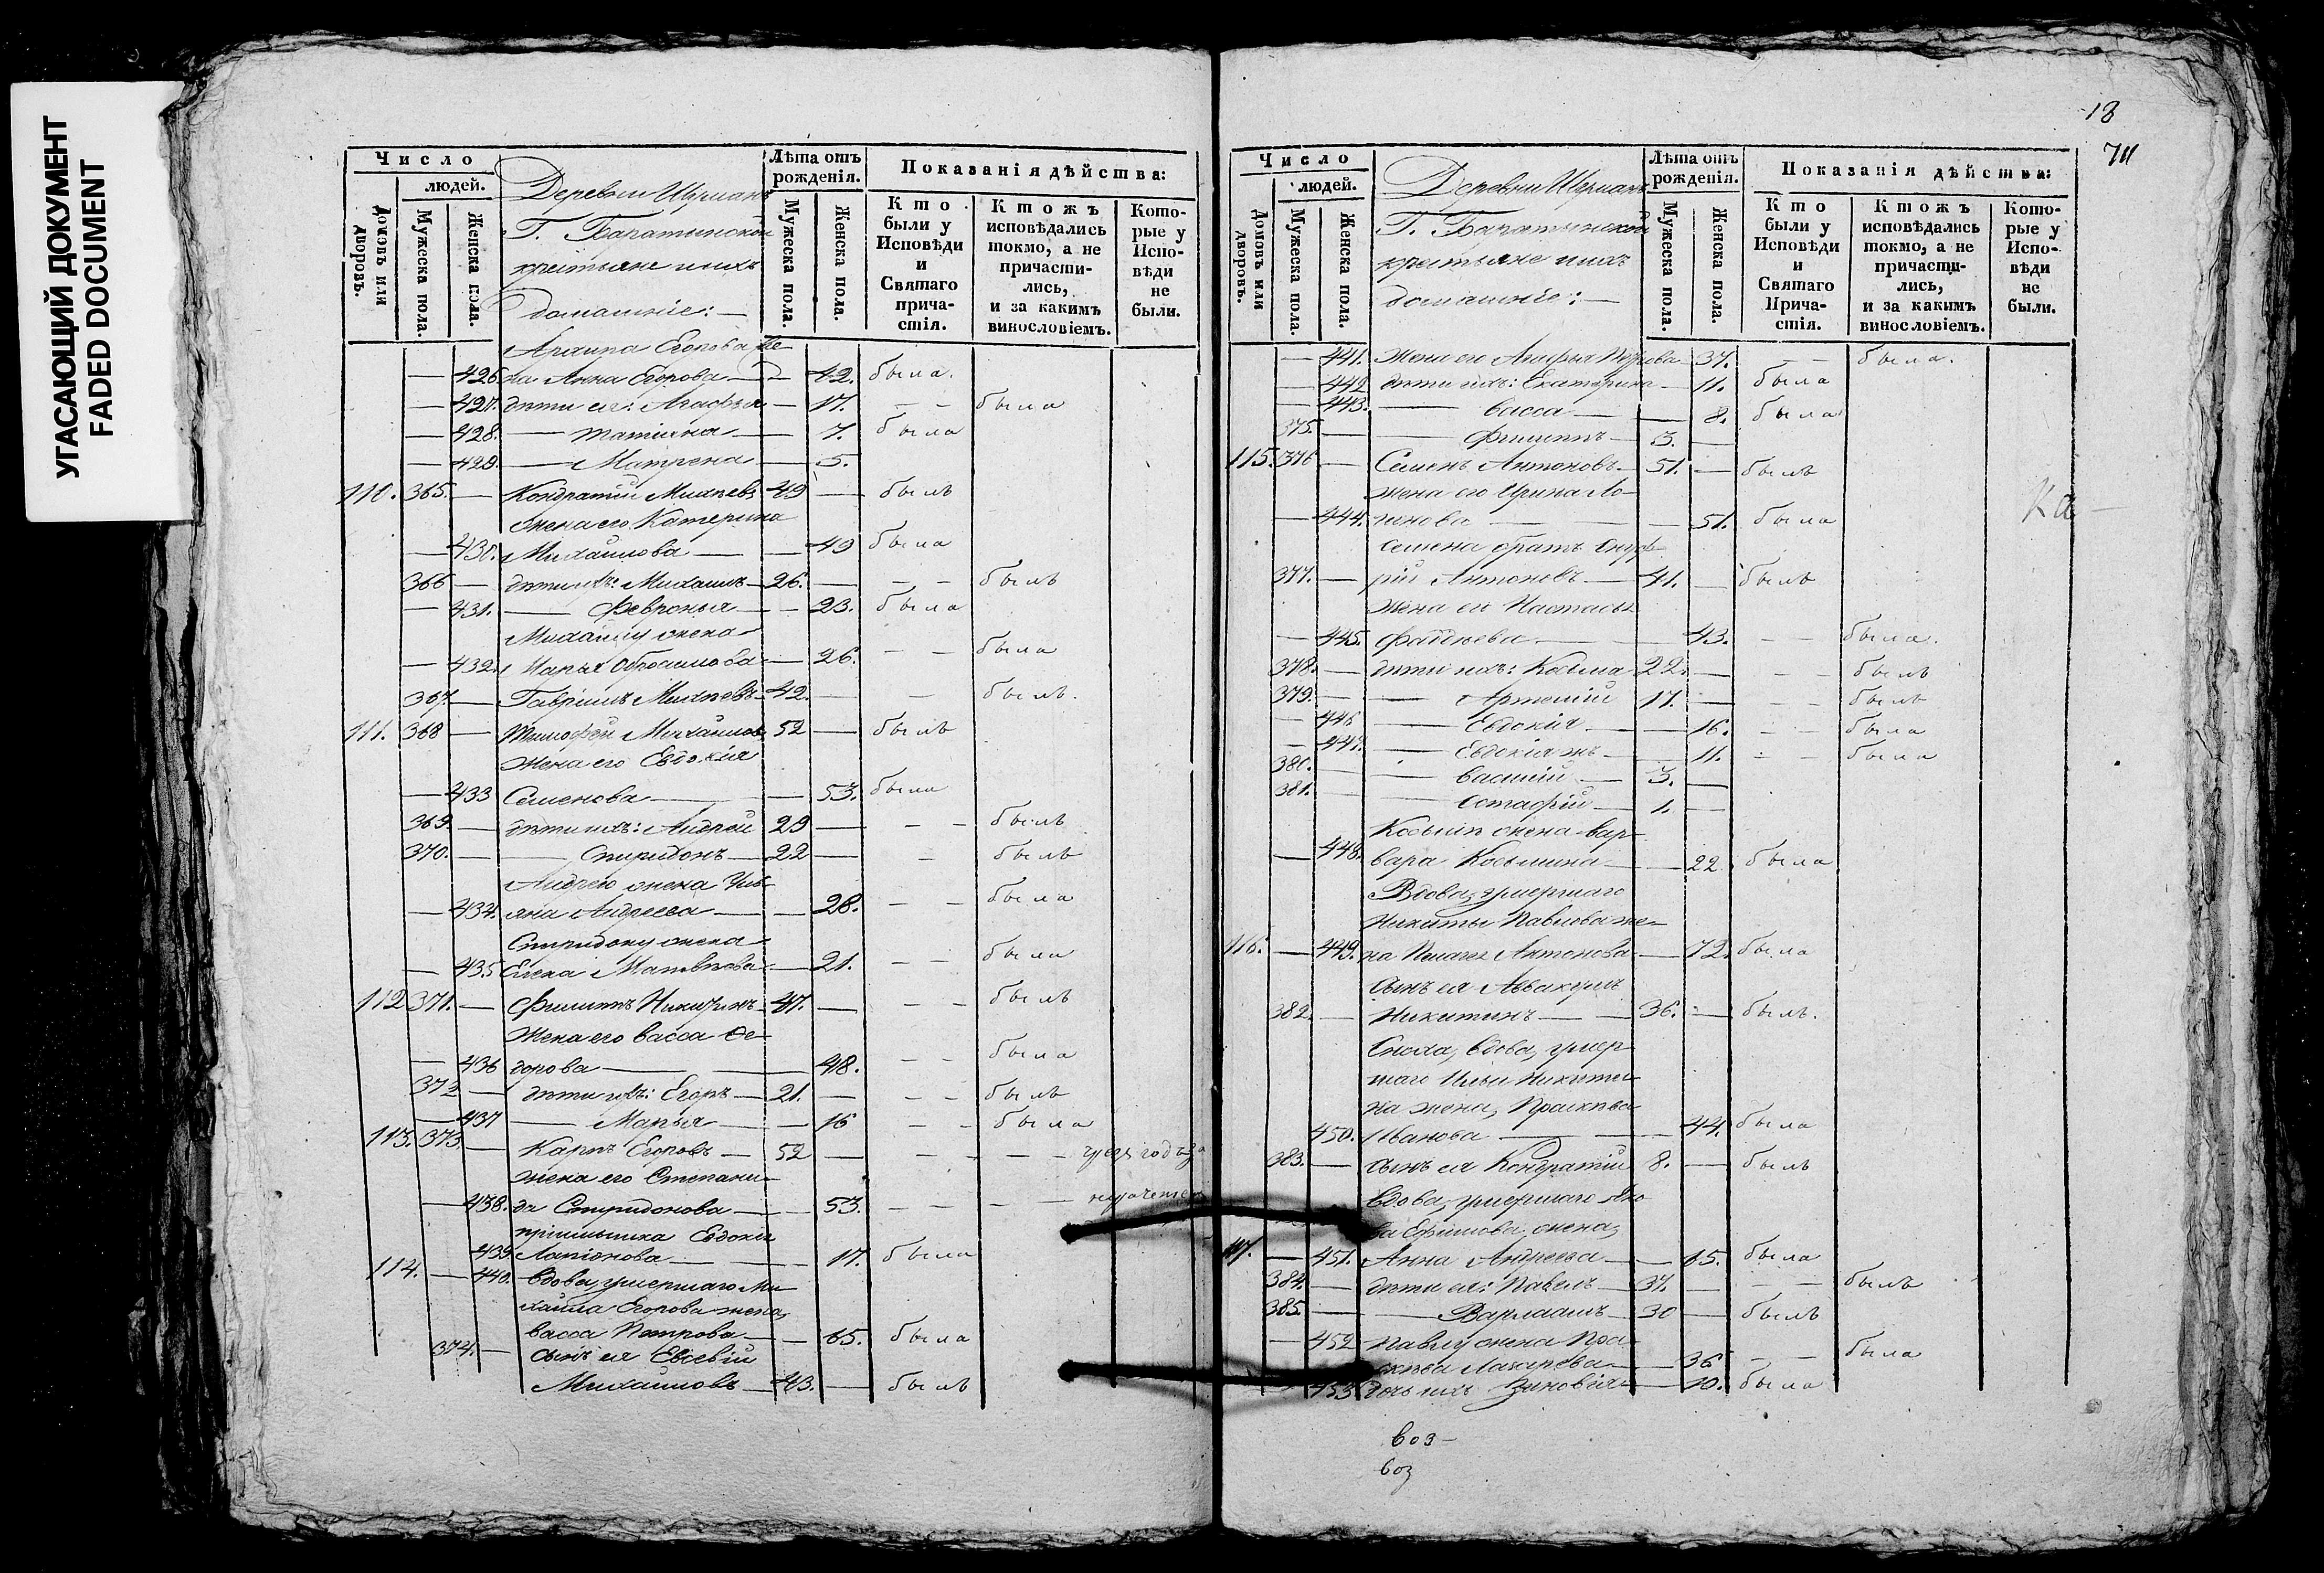 УГАСАЮЩИЙ ДОКУМЕНТ
FADED DOCUMENT
Число
людей.
Домовъ или дворовъ.
Мужеска пола.
Женска пола.
Деревни
Г. Баратынской
крестьяне и ихъ
домашніе: —
Лѣта отъ рожденія.
Мужеска пола.
Женска пола.
Показанія дѣйства:
Кто были у Исповѣди и Святаго причастія.
Ктожъ исповѣдались токмо, а не причастились, и за какимъ винословіемъ.
Которые у Исповѣди не были.
Егорова же-
— 426 на Анна Егорова — 42. была.
— 427. дѣти ея: Агафья — 17. — — была
— 428. — Татіана — 7. была
— 429. — Матрена — 5.
110. 365. — Кондратій Михѣевъ 49 — былъ
жена его Катерина
— 430. Михайлова — — 49 была
366 — дѣти ихъ: Михаилъ 26. — — — былъ
— 431. — Февронья — 23. была
Михаилу жена
— 432. Марья — 26. — — была
367. — Гавріилъ Михѣевъ 42. — — былъ.
111. 368 — Тимофей Михайловъ 52 — былъ
жена его Евдокія
— 433 Семенова — — 53. была
369. — дѣти ихъ: Андрей 29 — — — былъ
370. — — Спиридонъ 22 — — былъ
Андрею жена Уль-
— 434. яна Андреева — — 28. — — была
Спиридону жена
— 435 Елена Матвѣева — 21. — — была
112 371. — Филиппъ 47. — — — былъ
жена его Васса Ѳе-
— 436 дорова — — 48. — — была
372 — дѣти ихъ: Егоръ — 21. — — — былъ
— 437 — Марья — — 16 — — была
113. 373. — Карпъ Егоровъ — 52 — — — — —
жена его Степани-
— 438. да Спиридонова — 53. — — — —
Евдокія
439. — 17. была
114. — 440. вдова, умершаго Ми-
хаила Егорова жена,
Васса Петрова — — 65. была
374. — сынъ ея Евсевій
Михайловъ — 43. — былъ
18
Число
людей.
Домовъ или дворовъ.
Мужеска пола.
Женска пола.
Деревни
Г. Баратынской
крестьяне и ихъ
домашніе: —
Лѣта отъ рожденія.
Мужеска пола.
Женска пола.
Показанія дѣйства:
Кто были у Исповѣди и Святаго Причастія.
Ктожъ исповѣдались токмо, а не причастились, и за какимъ винословіемъ.
Которые у Исповѣди не были.
— 441. жена его — 37. — — была.
— 442 дѣти ихъ: Екатерина — 11. была
— 443. — Васса — — 8. была
375. — — Филиппъ — 3. —
115. 376 — Семенъ Антоновъ — 51. — былъ
жена его Ирина Ло-
— 444. гинова — — — 51. была
Ка —
Семена братъ Онуф-
377. — рій Антоновъ — 41. — былъ
жена его Настасья
— 445. Фадѣева — — 43. — — была.
378. — дѣти ихъ: Косьма 22. — — — былъ
379. — — Артемій 17. — — — былъ
— 446 — Евдокія — — 16. — — была
— 447. — Евдокія жъ — 11. — — была
380. — — Василій — 3. —
381. — — Остафій — 1. —
Косьмѣ жена Вар-
— 448. вара Косьмина — — 22. была
Вдова, умершаго
Никиты Павлова же-
116. — 449. на Пелагея Антонова — 72. была
сынъ ея Аввакумъ
382. — Никитинъ — — 36. — былъ.
Сноха, вдова, умер-
шаго Ильи Никити-
на жена, Прасковья
450. Иванова — — 44. была
383. — сынъ ея Кондратій 8. — былъ
Вдова, умершаго Яко-
ва Ефимова, жена,
117. — 451. Анна Андреева — 65. была
384. — дѣти ея: Павелъ — 37. — — — былъ
385. — — Варлаамъ — 30 — былъ
— 452 Павлу жена Пра-
сковья Лазарева — — 36 — — была
453 дочь ихъ Зиновія — 10. была
воз-
воз